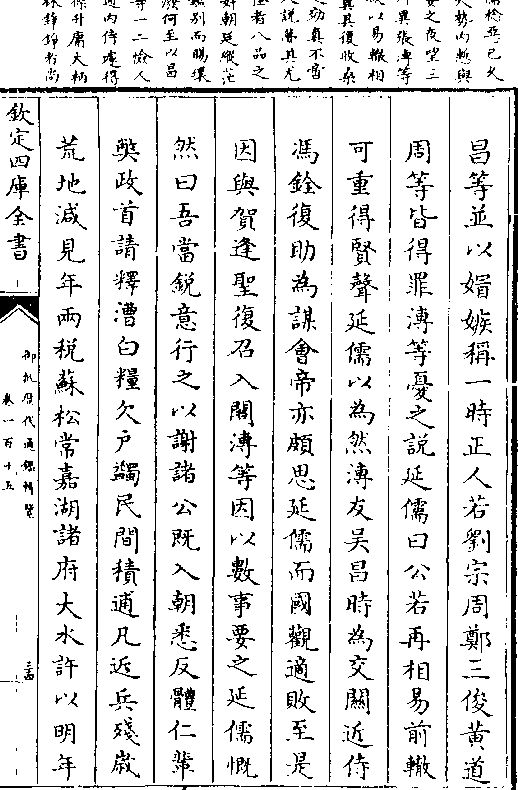 奸朝廷縱茫
廢何至以昌
等一二憸人
昌等並以媢嫉稱一時正人若劉宗周鄭三俊黃道
周等皆得罪溥等憂之說延儒曰公若再相易前轍
可重得賢聲延儒以為然溥友吳昌時為交關近侍
馮銓復助為謀會帝亦頗思延儒而國觀適敗至是
因與賀逢聖復召入閣溥等因以數事要之延儒慨
然曰吾當銳意行之以謝諸公既入朝悉反體仁輩
獘政首請釋漕白糧欠户蠲民間積逋凡近兵殘歲
荒地減見年兩税蘇松常嘉湖諸府大水許以明年
欽定四庫全書
御批歷代通鑑輯覽
卷一百十五